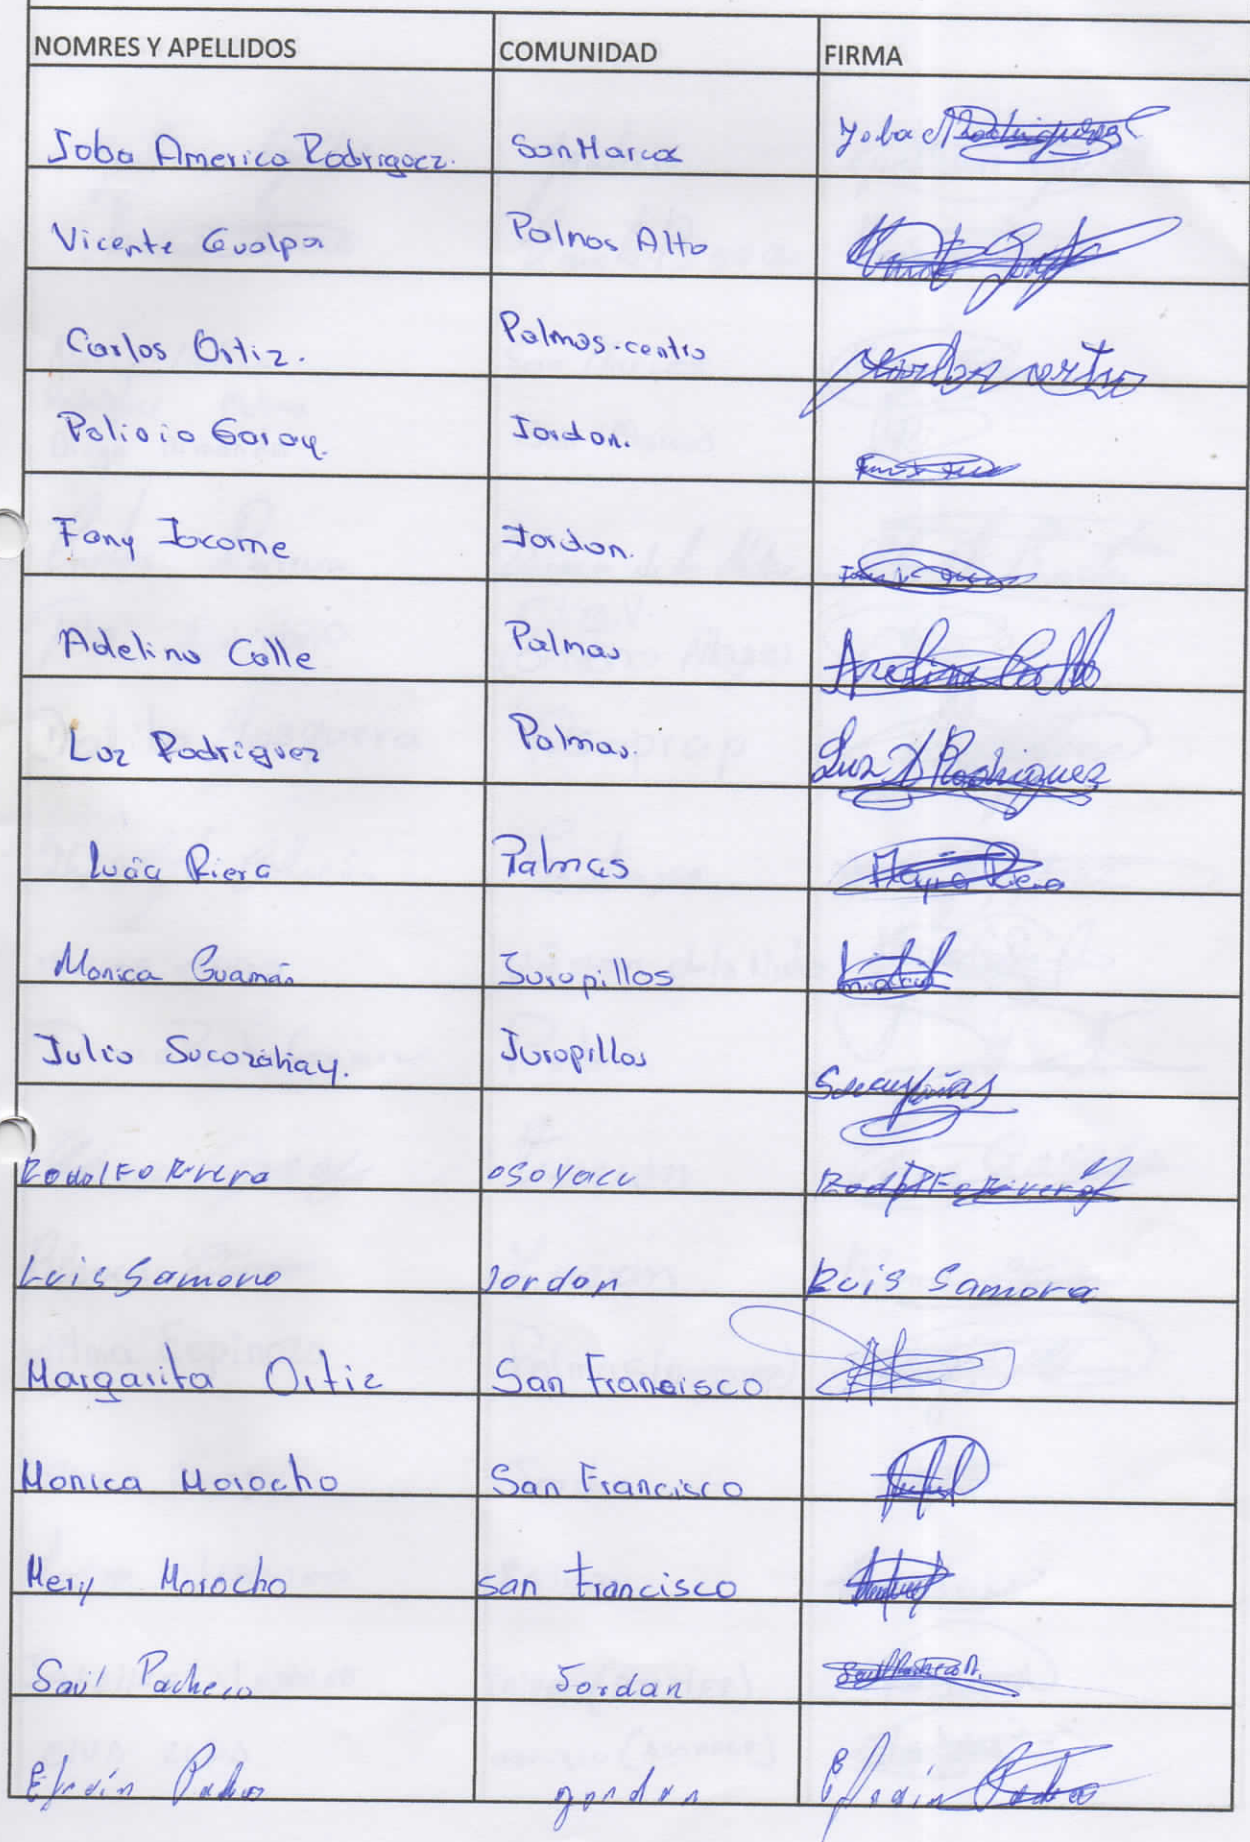 NOMRES Y APELLIDOS COMUNIDAD FIRMA
Joba America Rodriguez. San Marcos Yoba M Rodriguez
Vicente Gualpa Palmas Alto
Carlos Ortiz. Palmas-centro
Garay. Jordan.
Fany Jacome Jordan.
Adelino Calle Palmas
Luz Rodriguez Palmas. Luz Rodriguez
Lucia Riera Palmas
Monica Guamán Juropillos
Julio Juropillos
Rodolfo Rivera osoyacu Rodolfo Rivera
Luis Samora Jordan Luis Samora
Margarita Ortiz San Francisco
Monica Morocho San Francisco
Mery Morocho San Francisco
Saúl Pacheco Jordan
Efraín jordan Efrain